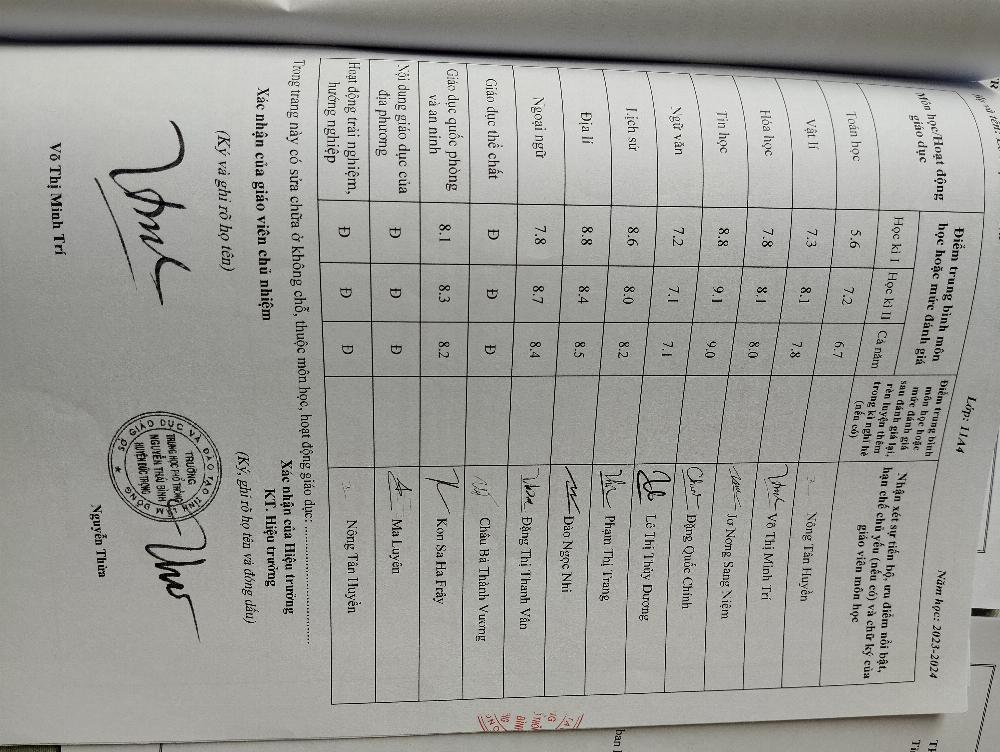 Lớp: 11A4
Năm học: 2023-2024
Môn học/Hoạt động giáo dục
Điểm trung bình môn học hoặc mức đánh giá
Học kì I
Học kì II
Cả năm
Điểm trung bình môn học hoặc mức đánh giá sau đánh giá lại, rèn luyện thêm trong kì nghỉ hè (nếu có)
Nhận xét sự tiến bộ, ưu điểm nổi bật, hạn chế chủ yếu (nếu có) và chữ ký của giáo viên môn học
Toán học 5.6 7.2 6.7
Vật lí 7.3 8.1 7.8 Nông Tân Huyền
Hóa học 7.8 8.1 8.0 Võ Thị Minh Trí
Tin học 8.8 9.1 9.0 Jơ Nơng Sang Niệm
Ngữ văn 7.2 7.1 7.1 Đặng Quốc Chinh
Lịch sử 8.6 8.0 8.2 Lê Thị Thùy Dương
Địa lí 8.8 8.4 8.5 Phạm Thị Trang
Ngoại ngữ 7.8 8.7 8.4 Đào Ngọc Nhi
Giáo dục thể chất Đ Đ Đ Đặng Thị Thanh Vân
Giáo dục quốc phòng và an ninh 8.1 8.3 8.2 Châu Bá Thành Vương
Nội dung giáo dục của địa phương Đ Đ Đ Kon Sa Ha Frây
Hoạt động trải nghiệm, hướng nghiệp Đ Đ Đ Ma Luyên
Nông Tân Huyền
Trong trang này có sửa chữa ở không chỗ, thuộc môn học, hoạt động giáo dục: ...
Xác nhận của giáo viên chủ nhiệm
(Ký và ghi rõ họ tên)
Võ Thị Minh Trí
Xác nhận của Hiệu trưởng
KT. Hiệu trưởng
(Ký, ghi rõ họ tên và đóng dấu)
SỞ GIÁO DỤC VÀ ĐÀO TẠO TỈNH LÂM ĐỒNG
TRƯỜNG
TRUNG HỌC PHỔ THÔNG
NGUYỄN THÁI BÌNH
HUYỆN ĐỨC TRỌNG
Nguyễn Thừa